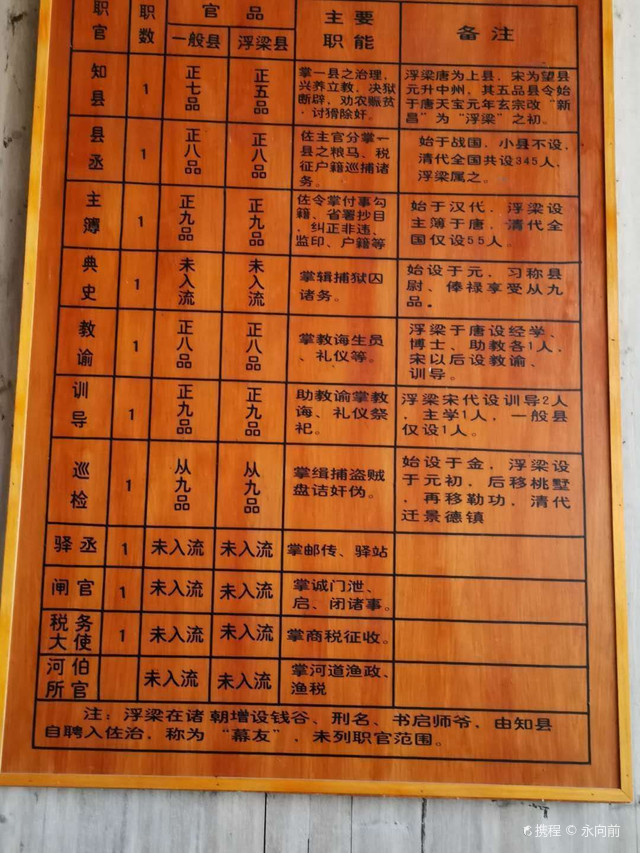 职官 职数 官品 主要职能 备注
一般县 浮梁县
知县 1 正七品 正五品
掌一县之治理,
兴养立教、决狱
断辟、劝农赈贫
、讨猾除奸。
浮梁唐为上县, 宋为望县
元升中州, 其五品县令始
于唐天宝元年玄宗改“新
昌”为“浮梁”之初。
县丞 1 正八品 正八品
佐主官分掌一
县之粮马、税
征户籍巡捕诸
务。
始于战国, 小县不设,
清代全国共设345人,
浮梁属之。
主簿 1 正九品 正九品
佐令掌付事勾
籍、省署抄目
、纠正非违、
监印、户籍等
始于汉代, 浮梁设
主薄于唐, 清代全
国仅设55人。
典史 1 未入流 未入流
掌辑捕狱囚
诸务。
始设于元, 习称县
尉、俸禄享受从九
品。
教谕 1 正八品 正八品
掌教海生员
、礼仪等。
浮梁于唐设经学、
博士、助教各1人,
宋以后设教谕、
训导。
训导 1 正九品 正九品
助教谕掌教
诲、礼仪祭
祀。
浮梁宋代设训导2人
, 主学1人, 一般县
仅设1人。
巡检 1 从九品 从九品
掌缉捕盗贼
盘诘奸伪。
始设于金, 浮梁设
于元初, 后移桃墅
, 再移勒功, 清代
迁景德镇
驿丞 1 未入流 未入流 掌邮传、驿站
闸官 1 未入流 未入流
掌诚门泄、
启、闭诸事。
税务大使 1 未入流 未入流 掌商税征收。
河伯所官 未入流 未入流
掌河道渔政、
渔税
注: 浮梁在诸 朝增设钱谷、刑名、书启师爷, 由知县
自聘入佐治, 称为 “幕友”, 未列职官范围。
携程 © 永向前